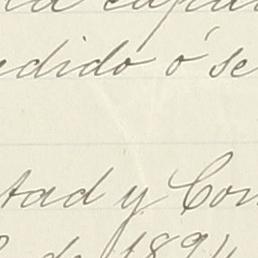 edido ó se
tad y Con
de 1894